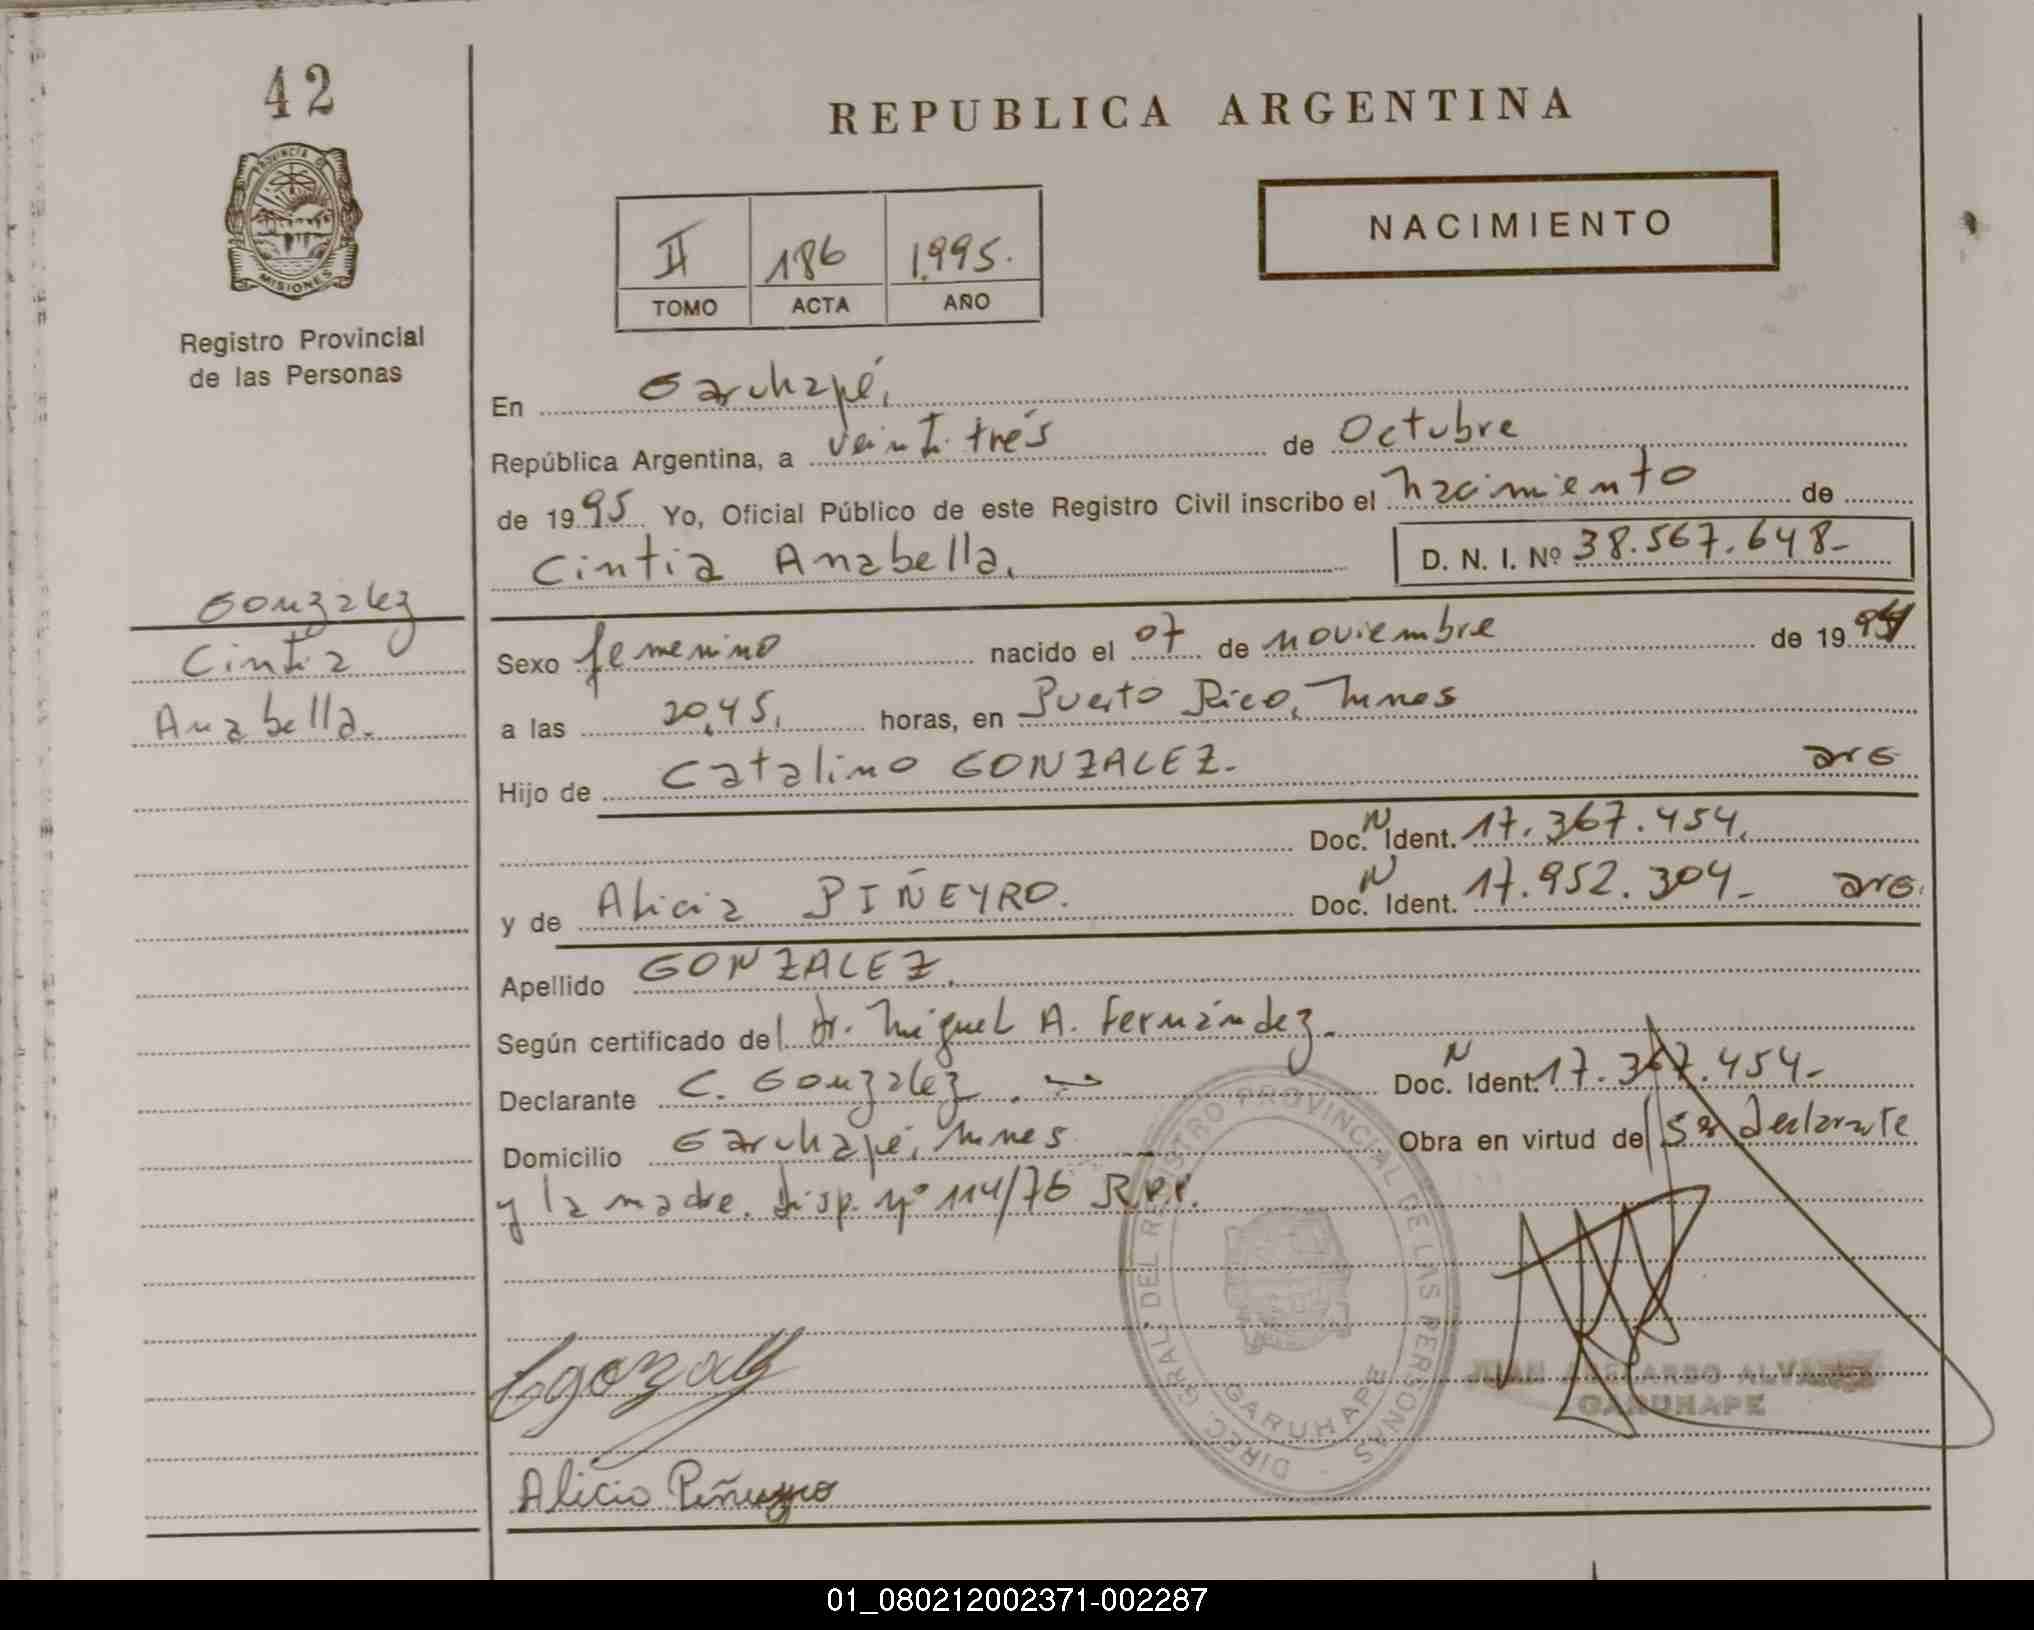 42
REPUBLICA ARGENTINA
PROVINCIA DE
MISIONES
Registro Provincial
de las Personas
II 186 1.995.
TOMO ACTA AÑO
NACIMIENTO
En Garuhapé,
República Argentina, a veintitrés de Octubre
de 1995 Yo, Oficial Público de este Registro Civil inscribo el nacimiento de
Cintia Anabella. D. N. I. Nº 38.567.648-
Gonzalez
Cintia
Anabella.
Sexo femenino nacido el 07 de noviembre de 19
a las 20,45, horas, en Puerto Rico, Mnes
Hijo de Catalino GONZALEZ. arg
Doc. N Ident. 17.367.454.
y de Alicia PIÑEYRO. Doc. N Ident. 17.952.304- arg.
Apellido GONZALEZ.
Según certificado del dr. Miguel A. Fernández.
Declarante C. Gonzalez. Doc. N Ident. 17.367.454-
Domicilio Garuhapé, Mnes Obra en virtud del ser declarante
y la madre. Disp. Nº 114/76 R.P.P.
DIREC. GRAL. DEL REGISTRO PROVINCIAL DE LAS PERSONAS
GARUHAPE
JUAN ABELARDO ALVAREZ
GARUHAPE
Alicia Piñeyro
01_080212002371-002287